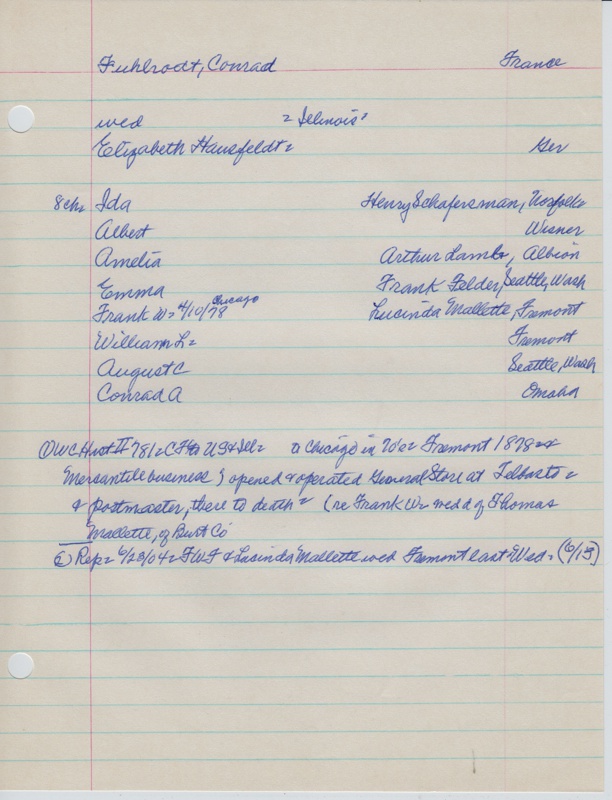 Fuhlrodt, Conrad France
wed = Illinois =
Elizabeth Hausfeldt = Ger
8 ch = Ida Henry Schafersman, Norfolk
Albert Wisner
Amelia Arthur Lamb, Albion
Emma Frank Felder, Seattle, Wash
Frank W = 4/10/78 Chicago Lucinda Mallette, Fremont
William L = Fremont
August C Seattle, Wash
Conrad A Omaha
① WC Hist II 781 = CF to US & Ill = to Chicago in 70's = Fremont 1878 = &
Mersantile business; opened & operated General Store at Telbasta =
& postmaster, there to death = (re Frank W = wed d of Thomas
Mallette, of Burt Co
② Rep = 6/28/04 = FWF & Lucinda Mallette wed Fremont last Wed =